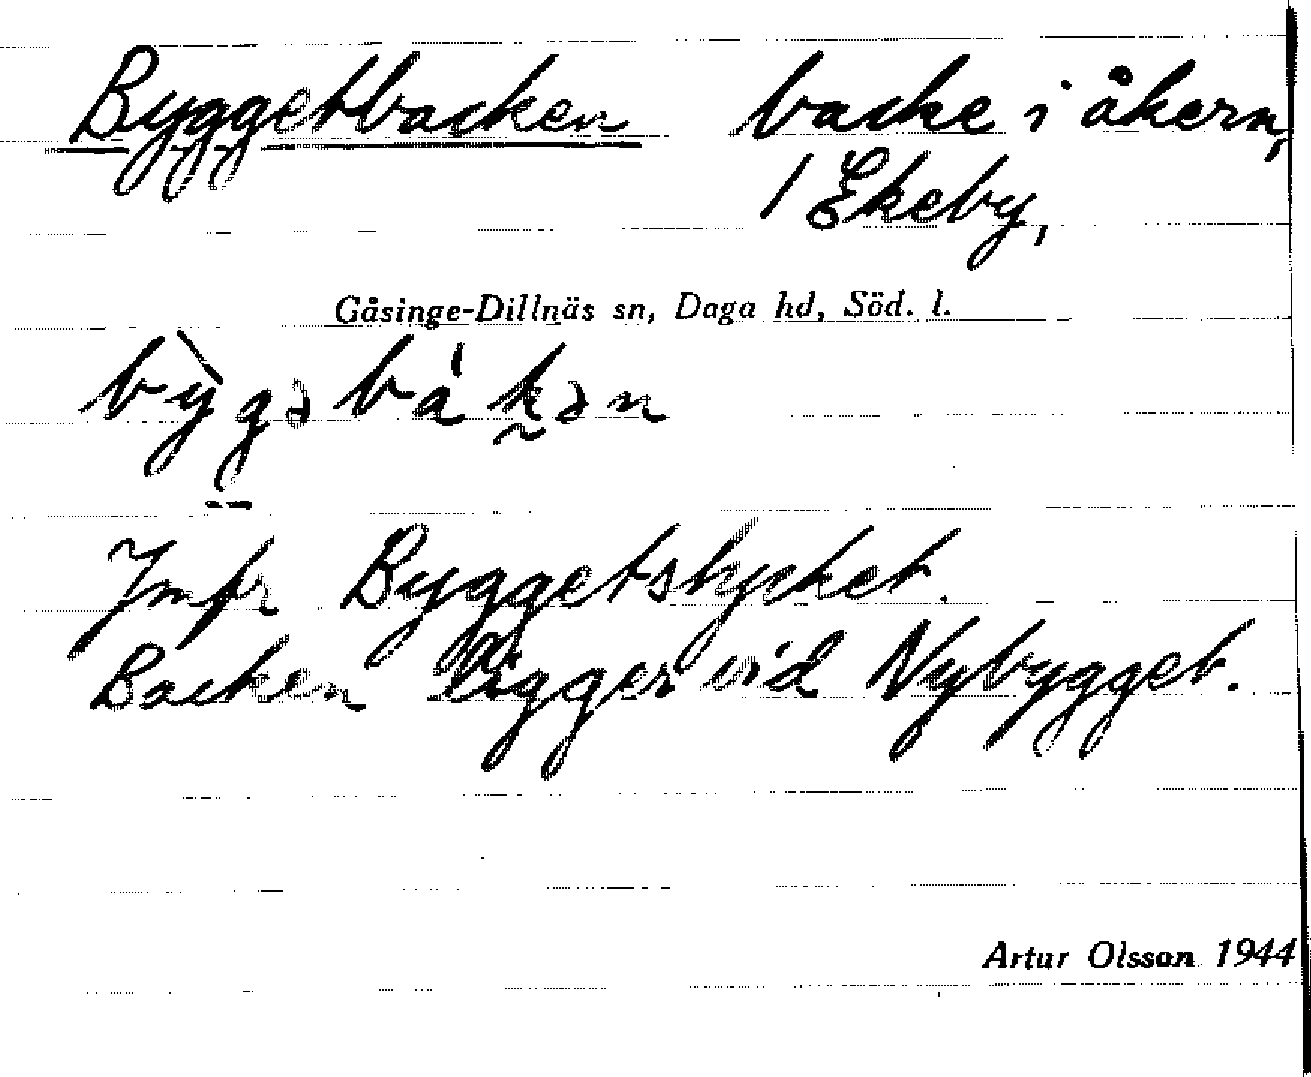 Byggetbacken backe i åkern,
/ Ekeby,
Gåsinge-Dillnäs sn, Daga hd, Söd. l.
bỳgəbákən
Jmfr Byggetstycket.
Backen ligger vid Nybygget.
Artur Olsson 1944